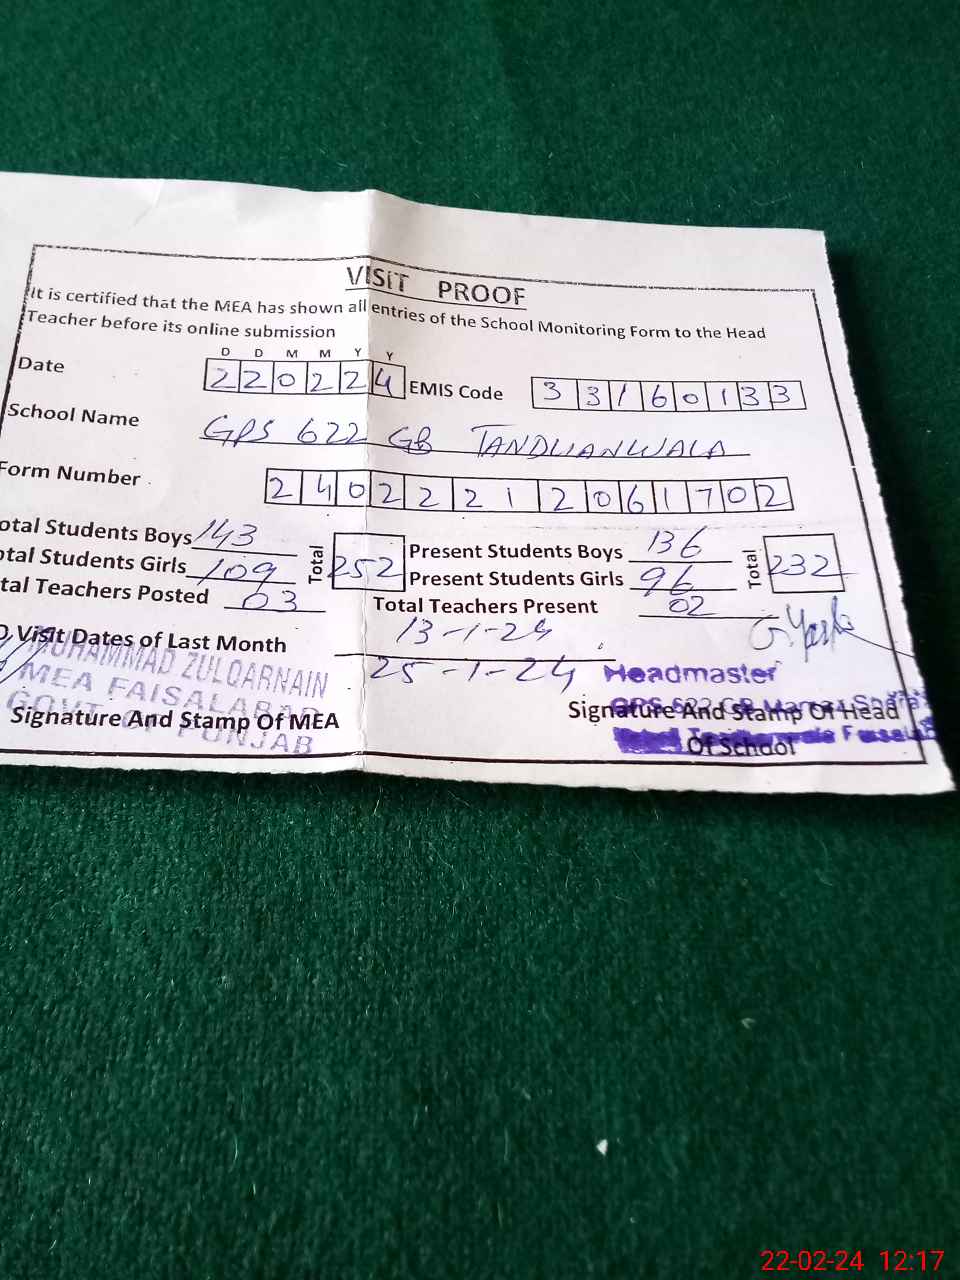 VISIT PROOF
It is certified that the MEA has shown all entries of the School Monitoring Form to the Head
Teacher before its online submission
D D M M Y Y
Date 2 2 0 2 2 4 EMIS Code 3 3 1 6 0 1 3 3
School Name GPS 622 GB TANDLIANWALA
Form Number 2 4 0 2 2 2 1 2 0 6 1 7 0 2
otal Students Boys 143 Total 252 Present Students Boys 136 Total 232
otal Students Girls 109 Present Students Girls 96
tal Teachers Posted 03 Total Teachers Present 02
Visit Dates of Last Month 13-1-24
25-1-24
MUHAMMAD ZULQARNAIN
MEA FAISALABAD
GOVT OF PUNJAB
Headmaster
Signature And Stamp Of MEA
Signature And Stamp Of Head
Of School
22-02-24 12:17